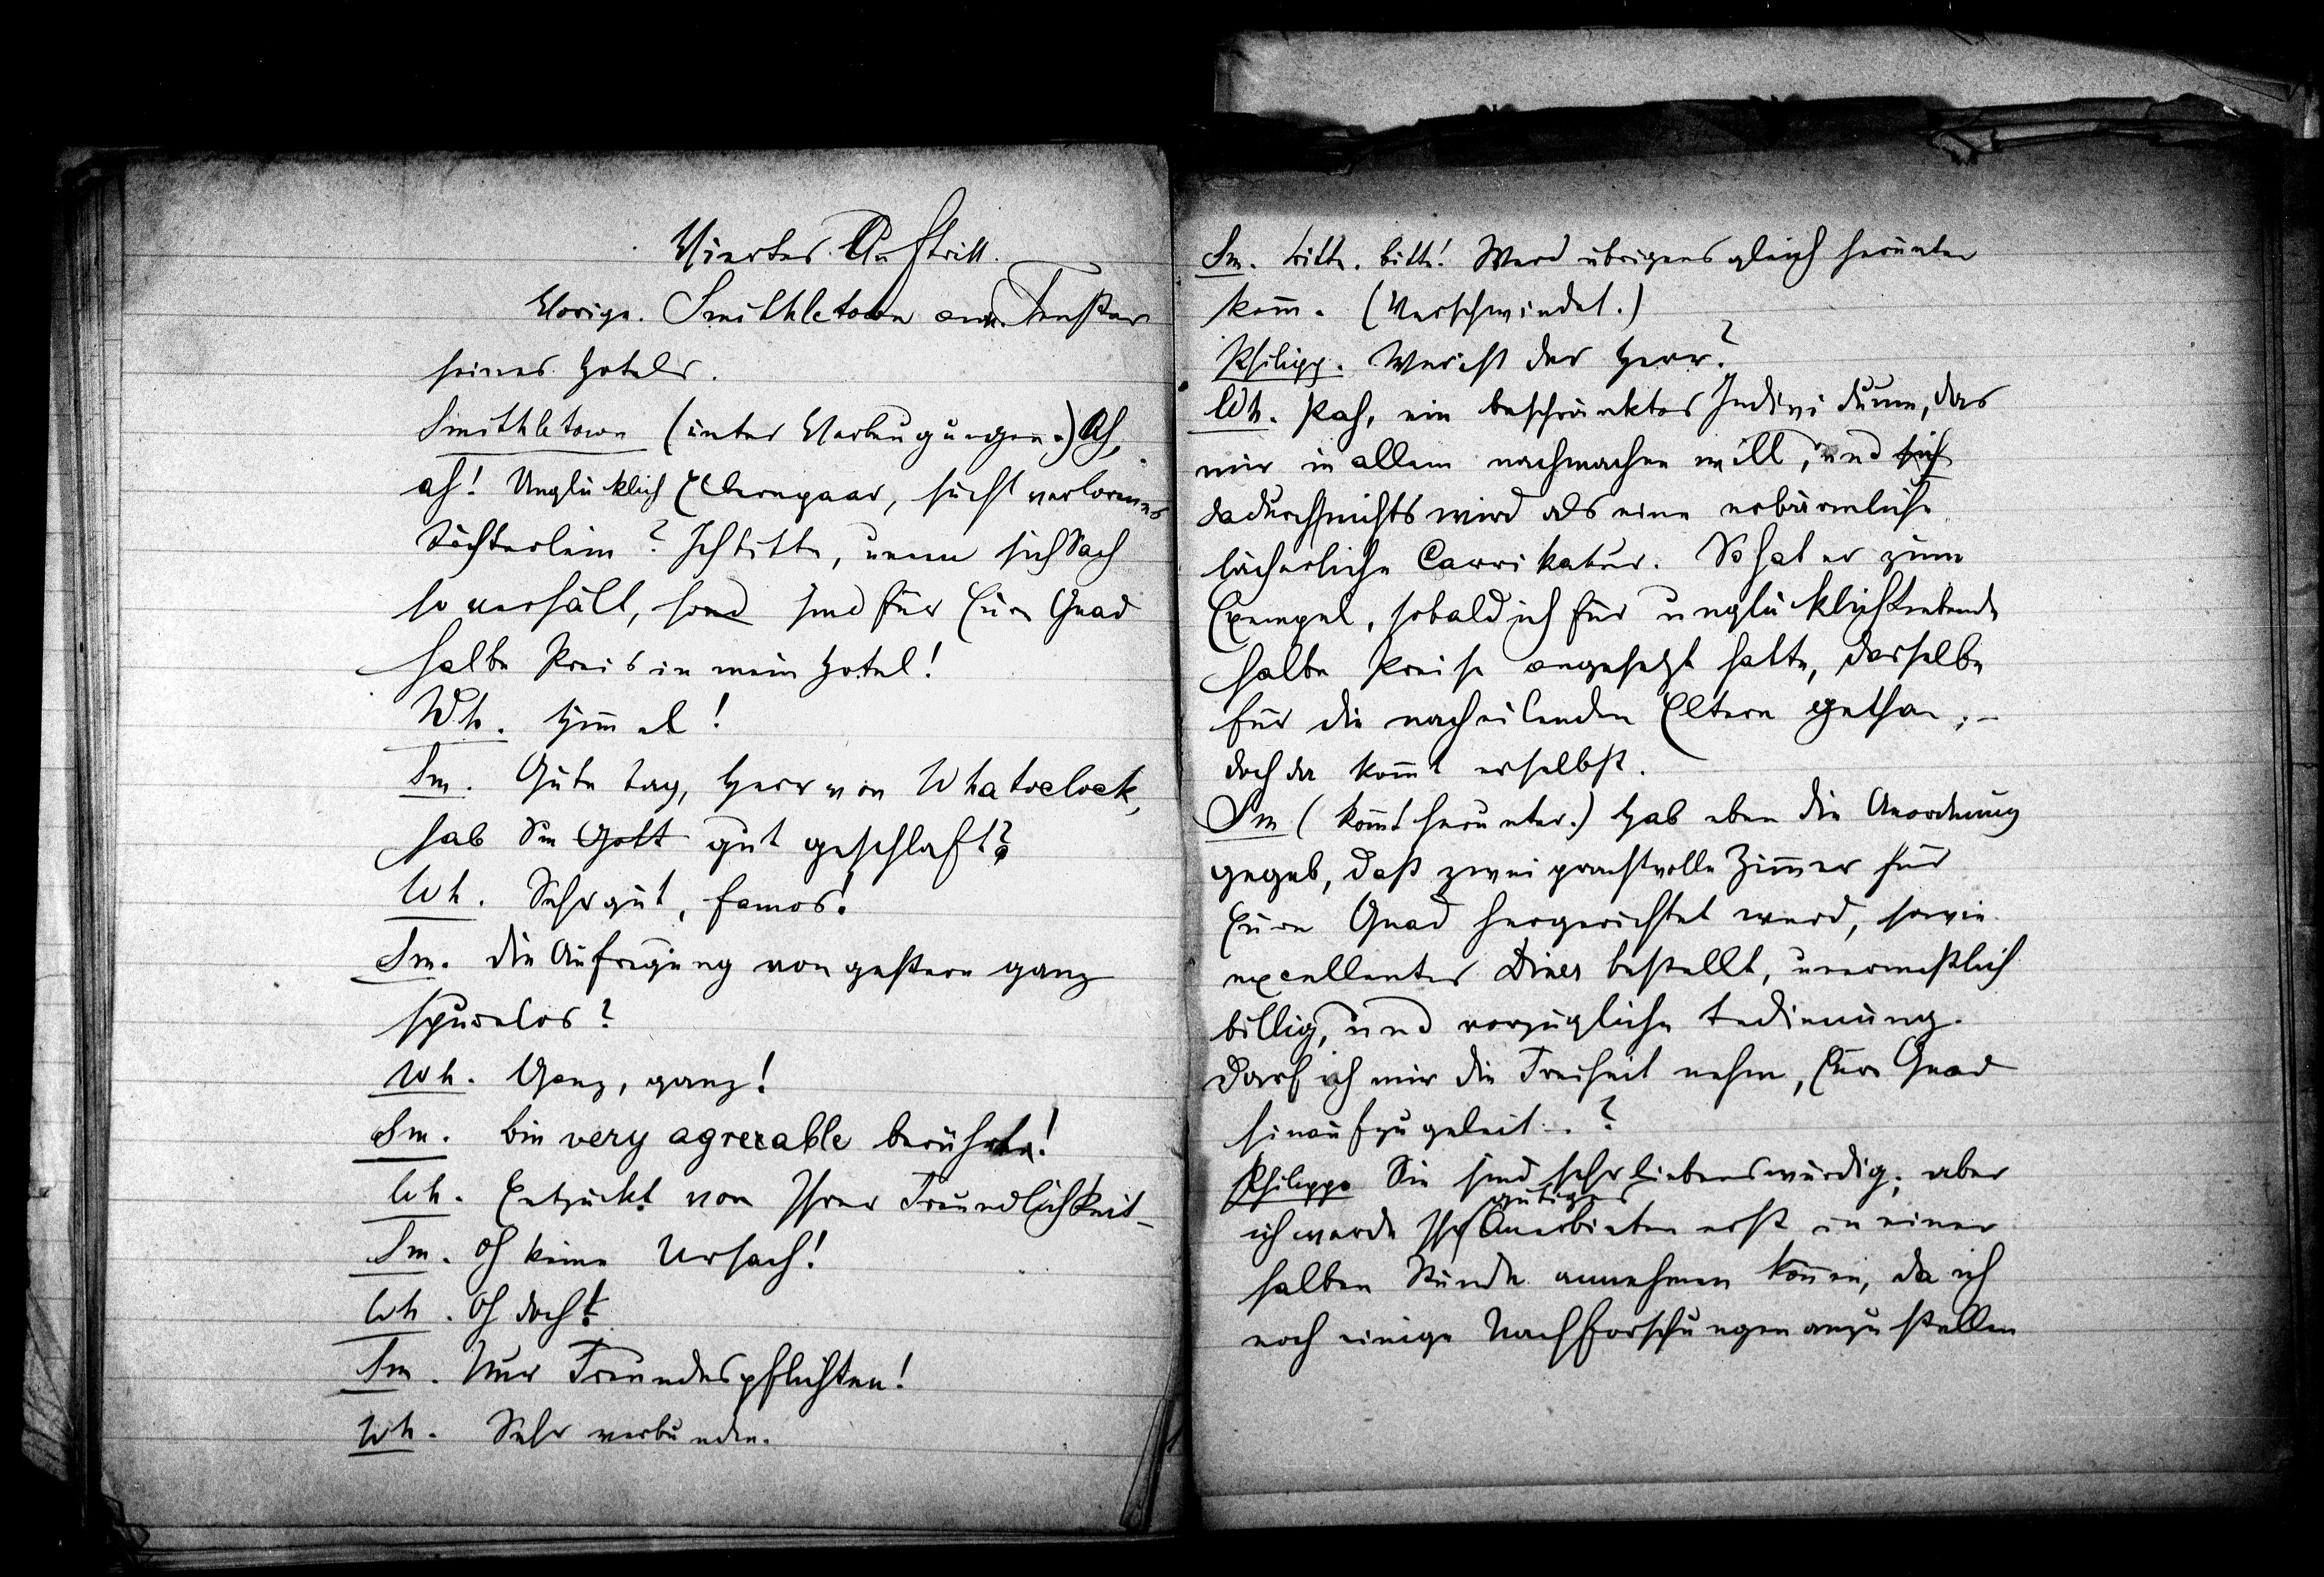 Vierter Auftritt.
Vorige. Smithletown am Fenster
seines Hotels.
Smithletown (unter Verbeugungen.) Ah,
ah! Unglücklich Elternpaar, sucht verlorenes
Töchterlein? Ich bitte, wenn sich Sach
so verhält, sond sind für Eure Gnad
halbe Preis in mein Hotel!
Wh. Him̄el!
Sm. Gute Tag, Herr von Whatoclock,
hab Sie Gott gut geschlaft?
Wh. Sehr gut, famos!
Sm. Die Aufregung von gestern ganz
spurlos?
Wh. Ganz, ganz!
Sm. Bin very agreeable berührt!
Wh. Entzückt von Ihrer Freundlichkeit –
Sm. Oh keine Ursach!
Wh. Oh doch!
Sm. Nur Freundespflichten!
Wh. Sehr verbunden.
Sm. Bitte, bitte! Werd übrigens gleich herunter
kom̄. (Verschwindet.)
Philipp. Wer ist der Herr?
Wh. Pah, ein beschränktes Individuum, das
mir in allem nachmachen will, und sich
dadurch nichts wird als eine erbärmliche
lächerliche Carrikatur. So hat er zum
Exempel, sobald ich für unglücklich Liebende
halbe Preise angesetzt hatte, dasselbe
für die nacheilenden Eltern gethan; –
doch da kom̄t er selbst.
Sm (kom̄t herunter.) Hab eben die Anordnung
gegeb, daß zwei prachtvolle Zim̄er für
Eure Gnad hergerichtet werd, sowie
excellentes Diner bestellt, unermeßlich
billig, und vorzügliche Bedienung.
Darf ich mir die Freiheit nehm, Eure Gnad
hinaufzugeleit..?
Philipp. Sie sind sehr liebenswürdig; aber
gütiges
ich werde Ihr Anerbieten erst in einer
halben Stunde annehmen kön̄en, da ich
noch einige Nachforschungen anzustellen